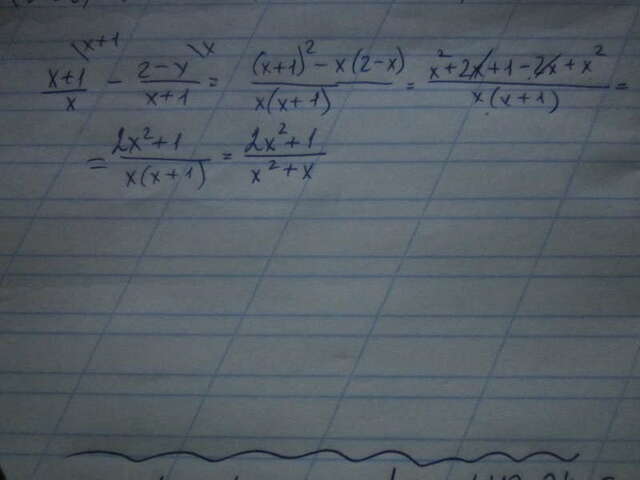 \x+1 \x
x+1/x - 2-x/x+1 = (x+1)² - x(2-x)/x(x+1) = x²+2x+1-2x+x²/x(x+1) =
= 2x²+1/x(x+1) = 2x²+1/x²+x